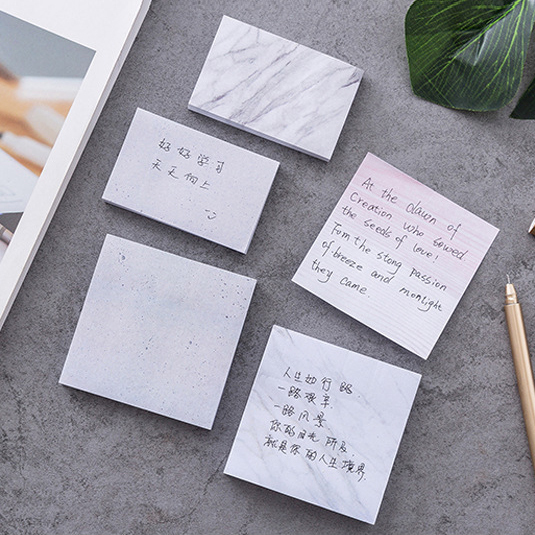 好好学习
天天向上
At the dawn of
Creation who sowed
the seeds of love!
Fom the stong passion
of breeze and monlight
they came.
人生如行路.
一路艰辛
一路风景
你的目光所及,
就是你的人生境界.